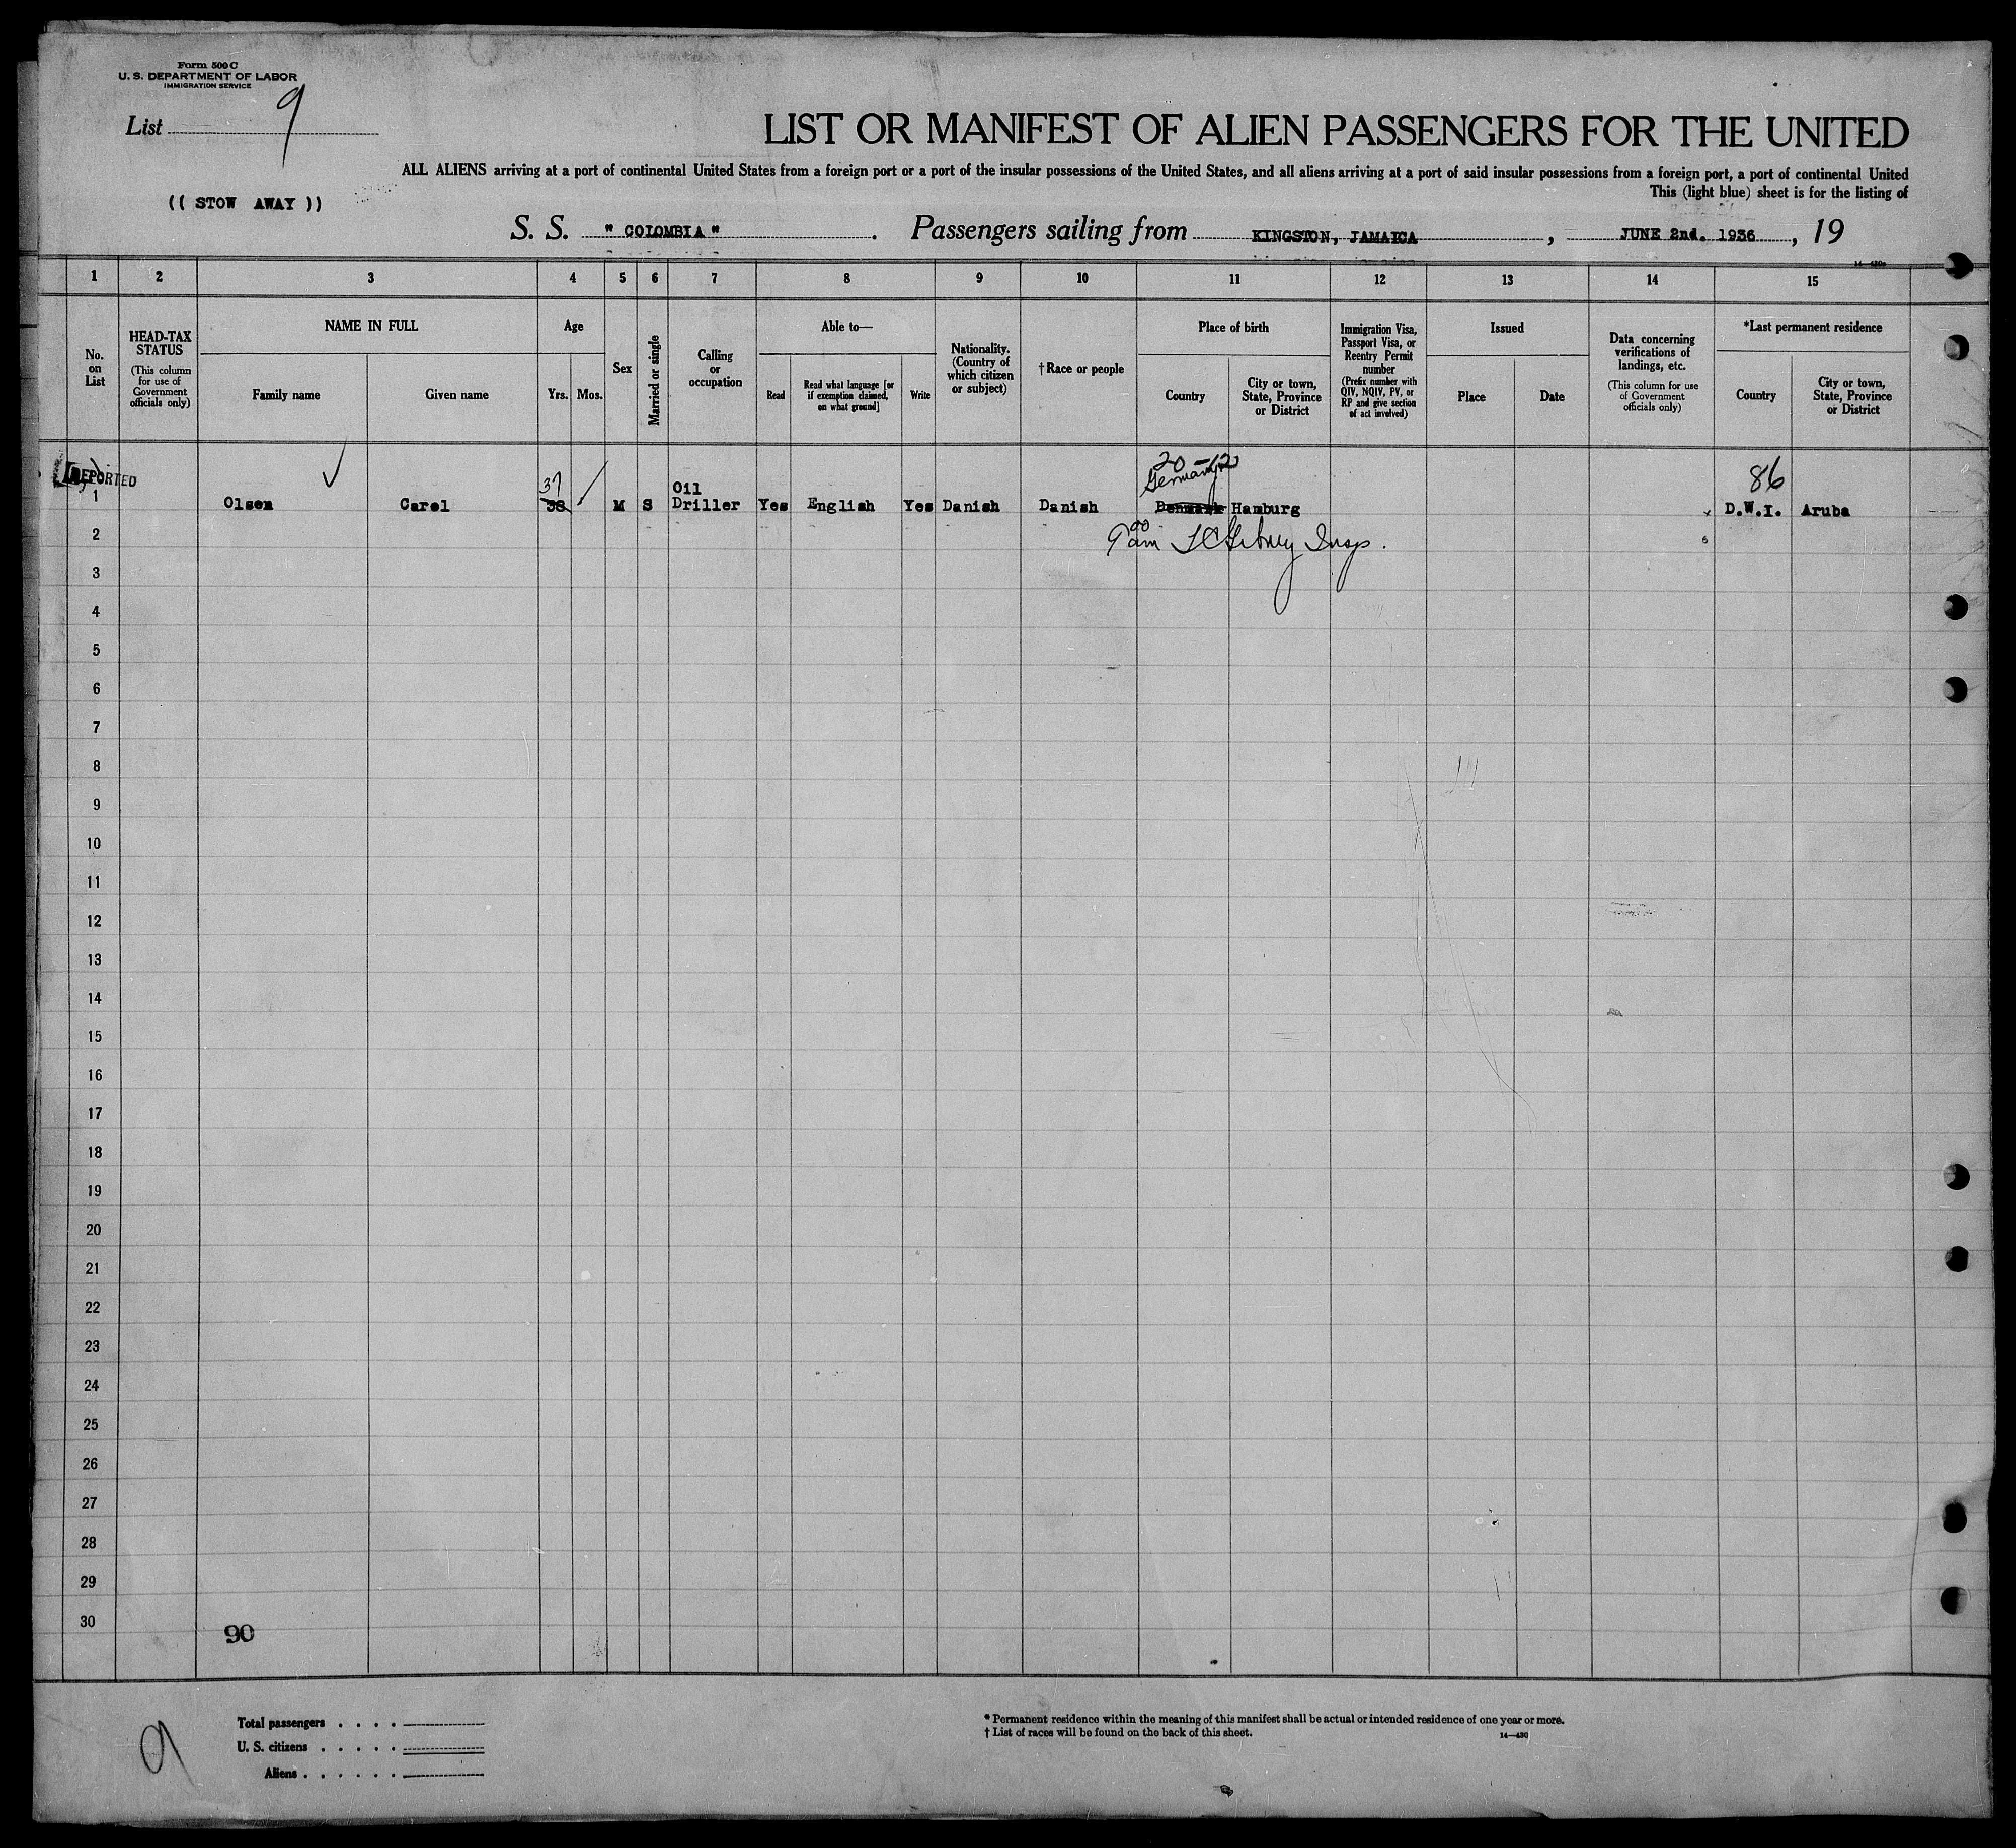 Form 500 C
U. S. DEPARTMENT OF LABOR
IMMIGRATION SERVICE
List 9
LIST OR MANIFEST OF ALIEN PASSENGERS FOR THE UNITED
ALL ALIENS arriving at a port of continental United States from a foreign port or a port of the insular possessions of the United States, and all aliens arriving at a port of said insular possessions from a foreign port, a port of continental United
This (light blue) sheet is for the listing of
(( STOW AWAY ))
S. S. " COLOMBIA ". Passengers sailing from KINGSTON, JAMAICA, JUNE 2nd. 1936, 19
14—430
1 2 3 4 5 6 7 8 9 10 11 12 13 14 15
No. on List
HEAD-TAX STATUS (This column for use of Government officials only)
NAME IN FULL
Family name
Given name
Age
Yrs.
Mos.
Sex
Married or single
Calling or occupation
Able to—
Read
Read what language [or if exemption claimed, on what ground]
Write
Nationality. (Country of which citizen or subject)
†Race or people
Place of birth
Country
City or town, State, Province or District
Immigration Visa, Passport Visa, or Reentry Permit number (Prefix number with QIV, NQIV, PV, or RP and give section of act involved)
Issued
Place
Date
Data concerning verifications of landings, etc. (This column for use of Government officials only)
*Last permanent residence
Country
City or town, State, Province or District
DEPORTED
20-12
Germany
37
86
1 Olsen Carel 38 M S Oil Driller Yes English Yes Danish Danish Denmark Hamburg D.W.I. Aruba
2 9 00 am Insp.
3
4
5
6
7
8
9
10
11
12
13
14
15
16
17
18
19
20
21
22
23
24
25
26
27
28
29
30
90
9
Total passengers . . . .
U. S. citizens . . . . .
Aliens . . . . . .
* Permanent residence within the meaning of this manifest shall be actual or intended residence of one year or more.
† List of races will be found on the back of this sheet.
14—430